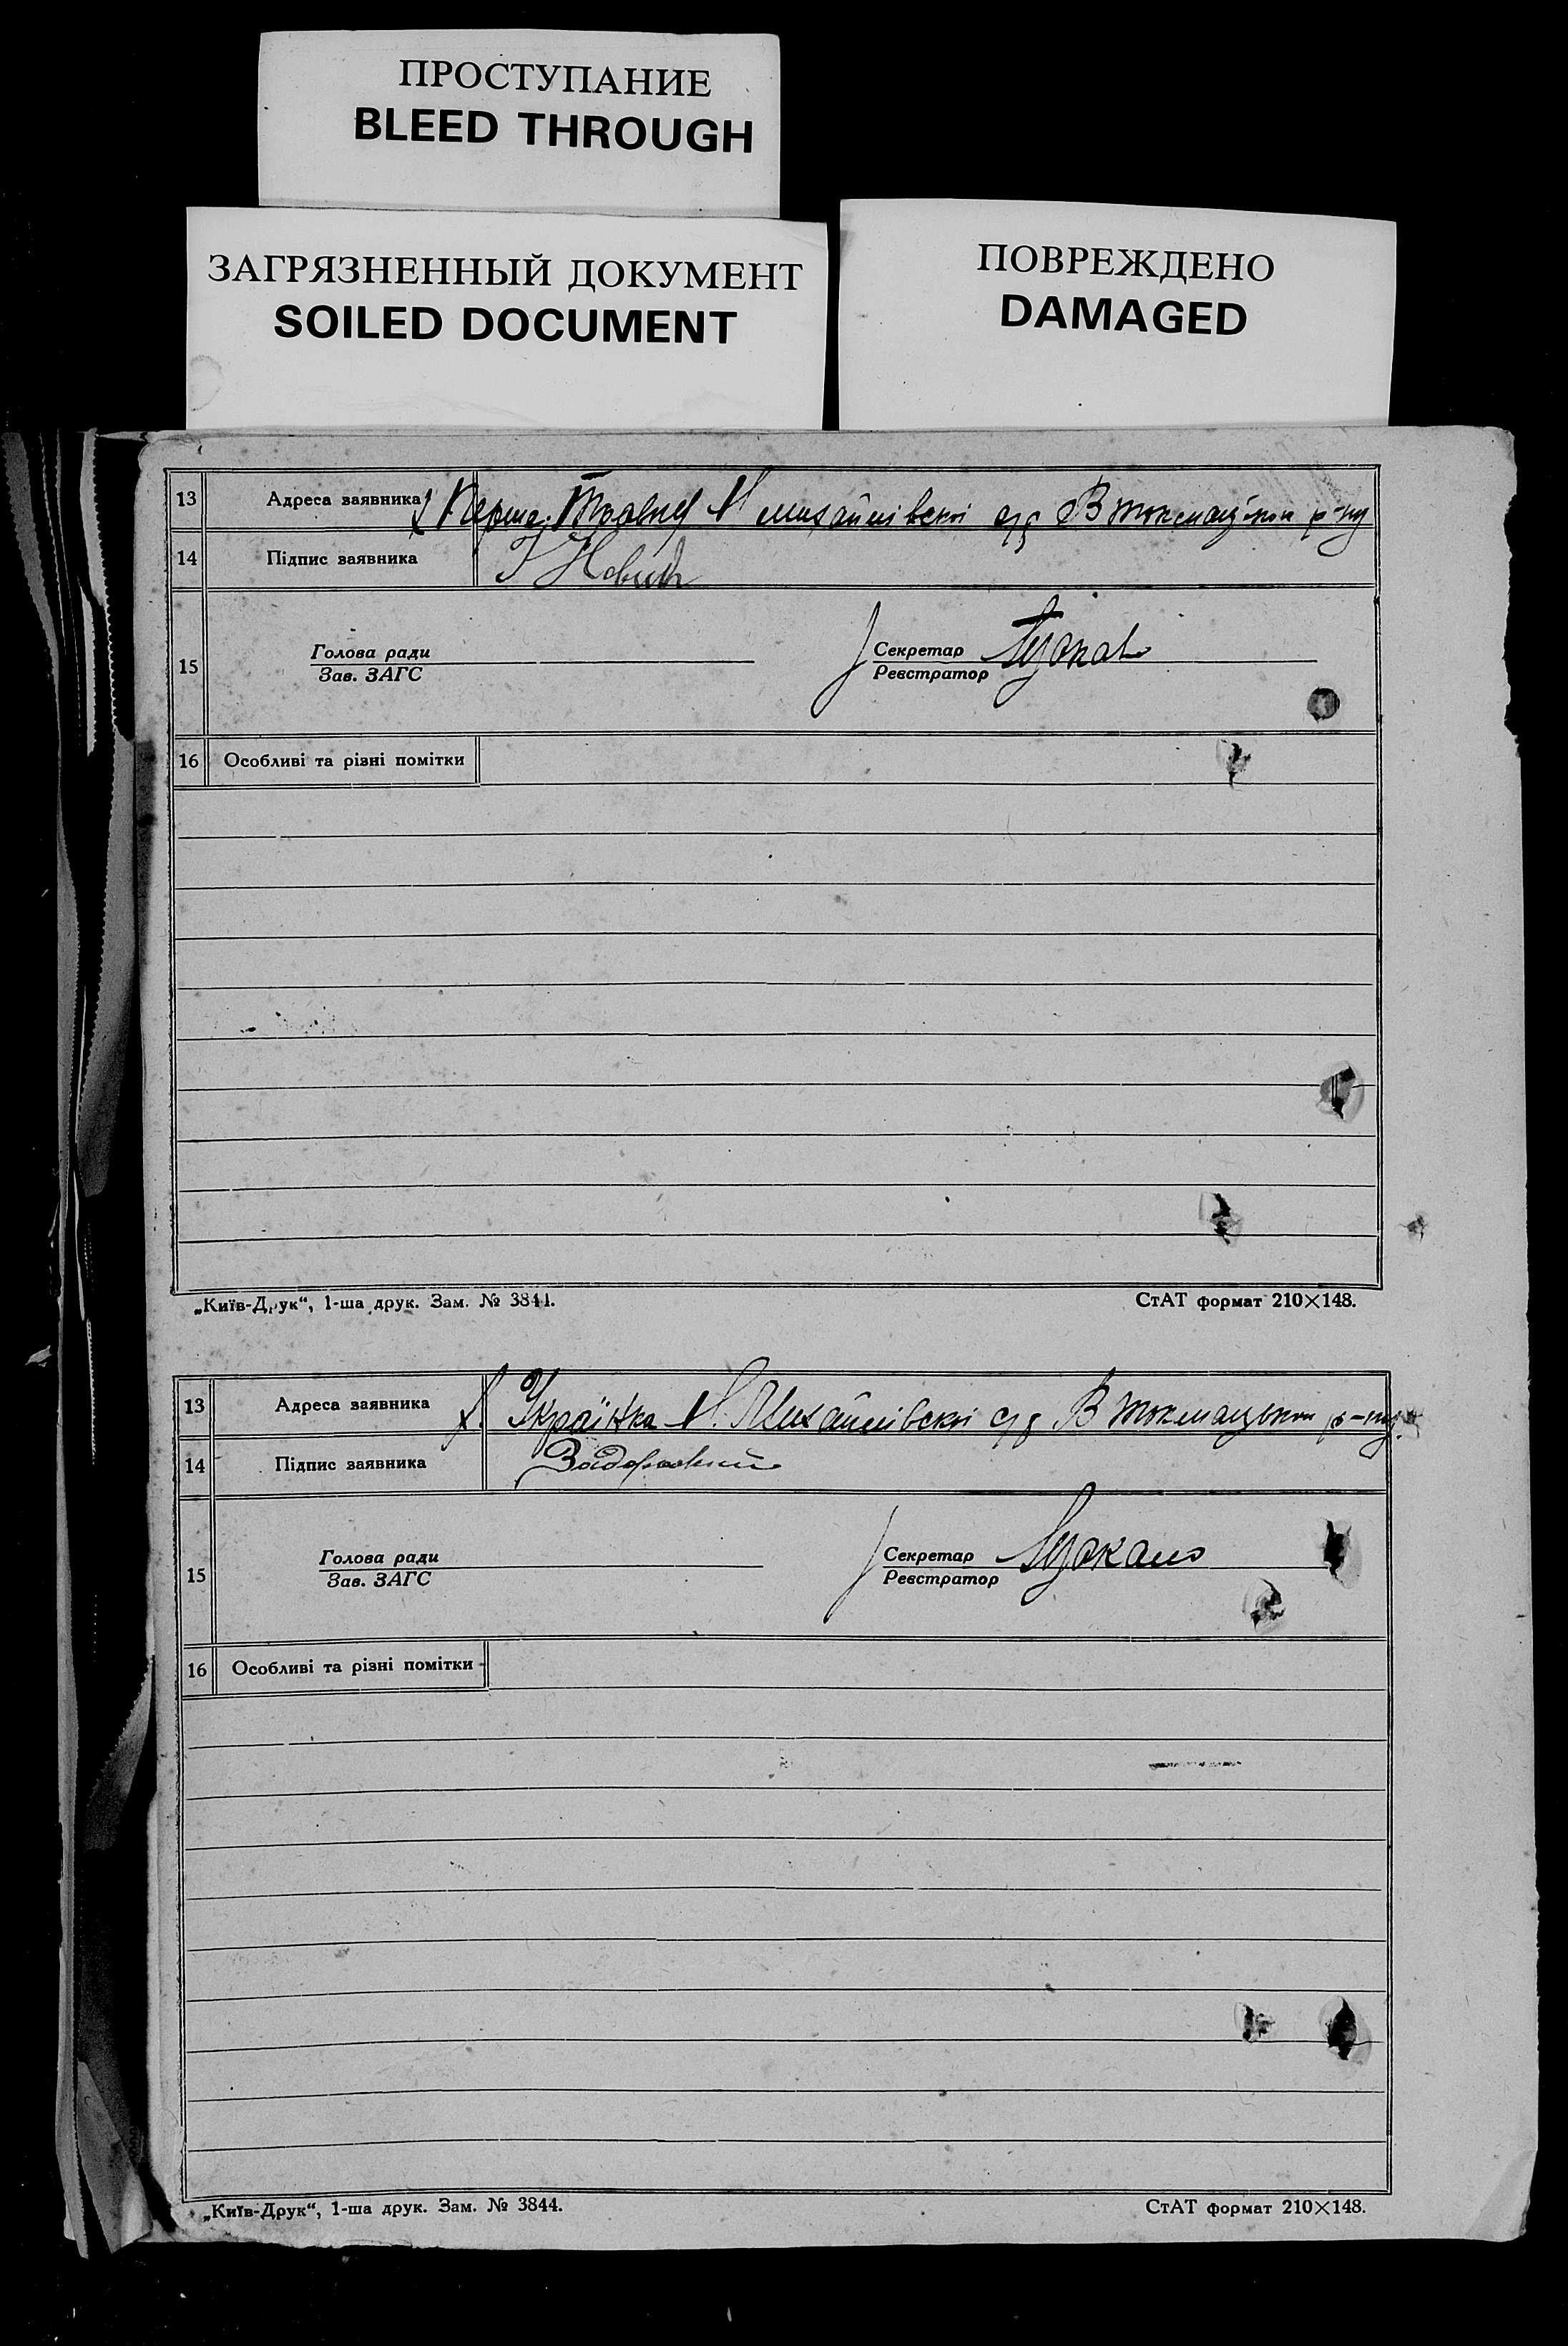 ПРОСТУПАНИЕ
BLEED THROUGH
ЗАГРЯЗНЕННЫЙ ДОКУМЕНТ
SOILED DOCUMENT
ПОВРЕЖДЕНО
DAMAGED
13 Адреса заявника х Перше Травня Н Михайлівскої с/р В Токмацького р-ну
14 Підпис заявника Новик
15 Голова ради
Зав. ЗАГС
Секретар
Реєстратор
16 Особливі та різні помітки
„Київ-Друк“, 1-ша друк. Зам. № 3844. СтАТ формат 210×148.
13 Адреса заявника х. Українка Н. Михайлівскої с/р В Токмацького р-ну.
14 Підпис заявника Задорожний
15 Голова ради
Зав. ЗАГС
Секретар
Реєстратор
16 Особливі та різні помітки
„Київ-Друк“, 1-ша друк. Зам. № 3844. СтАТ формат 210×148.